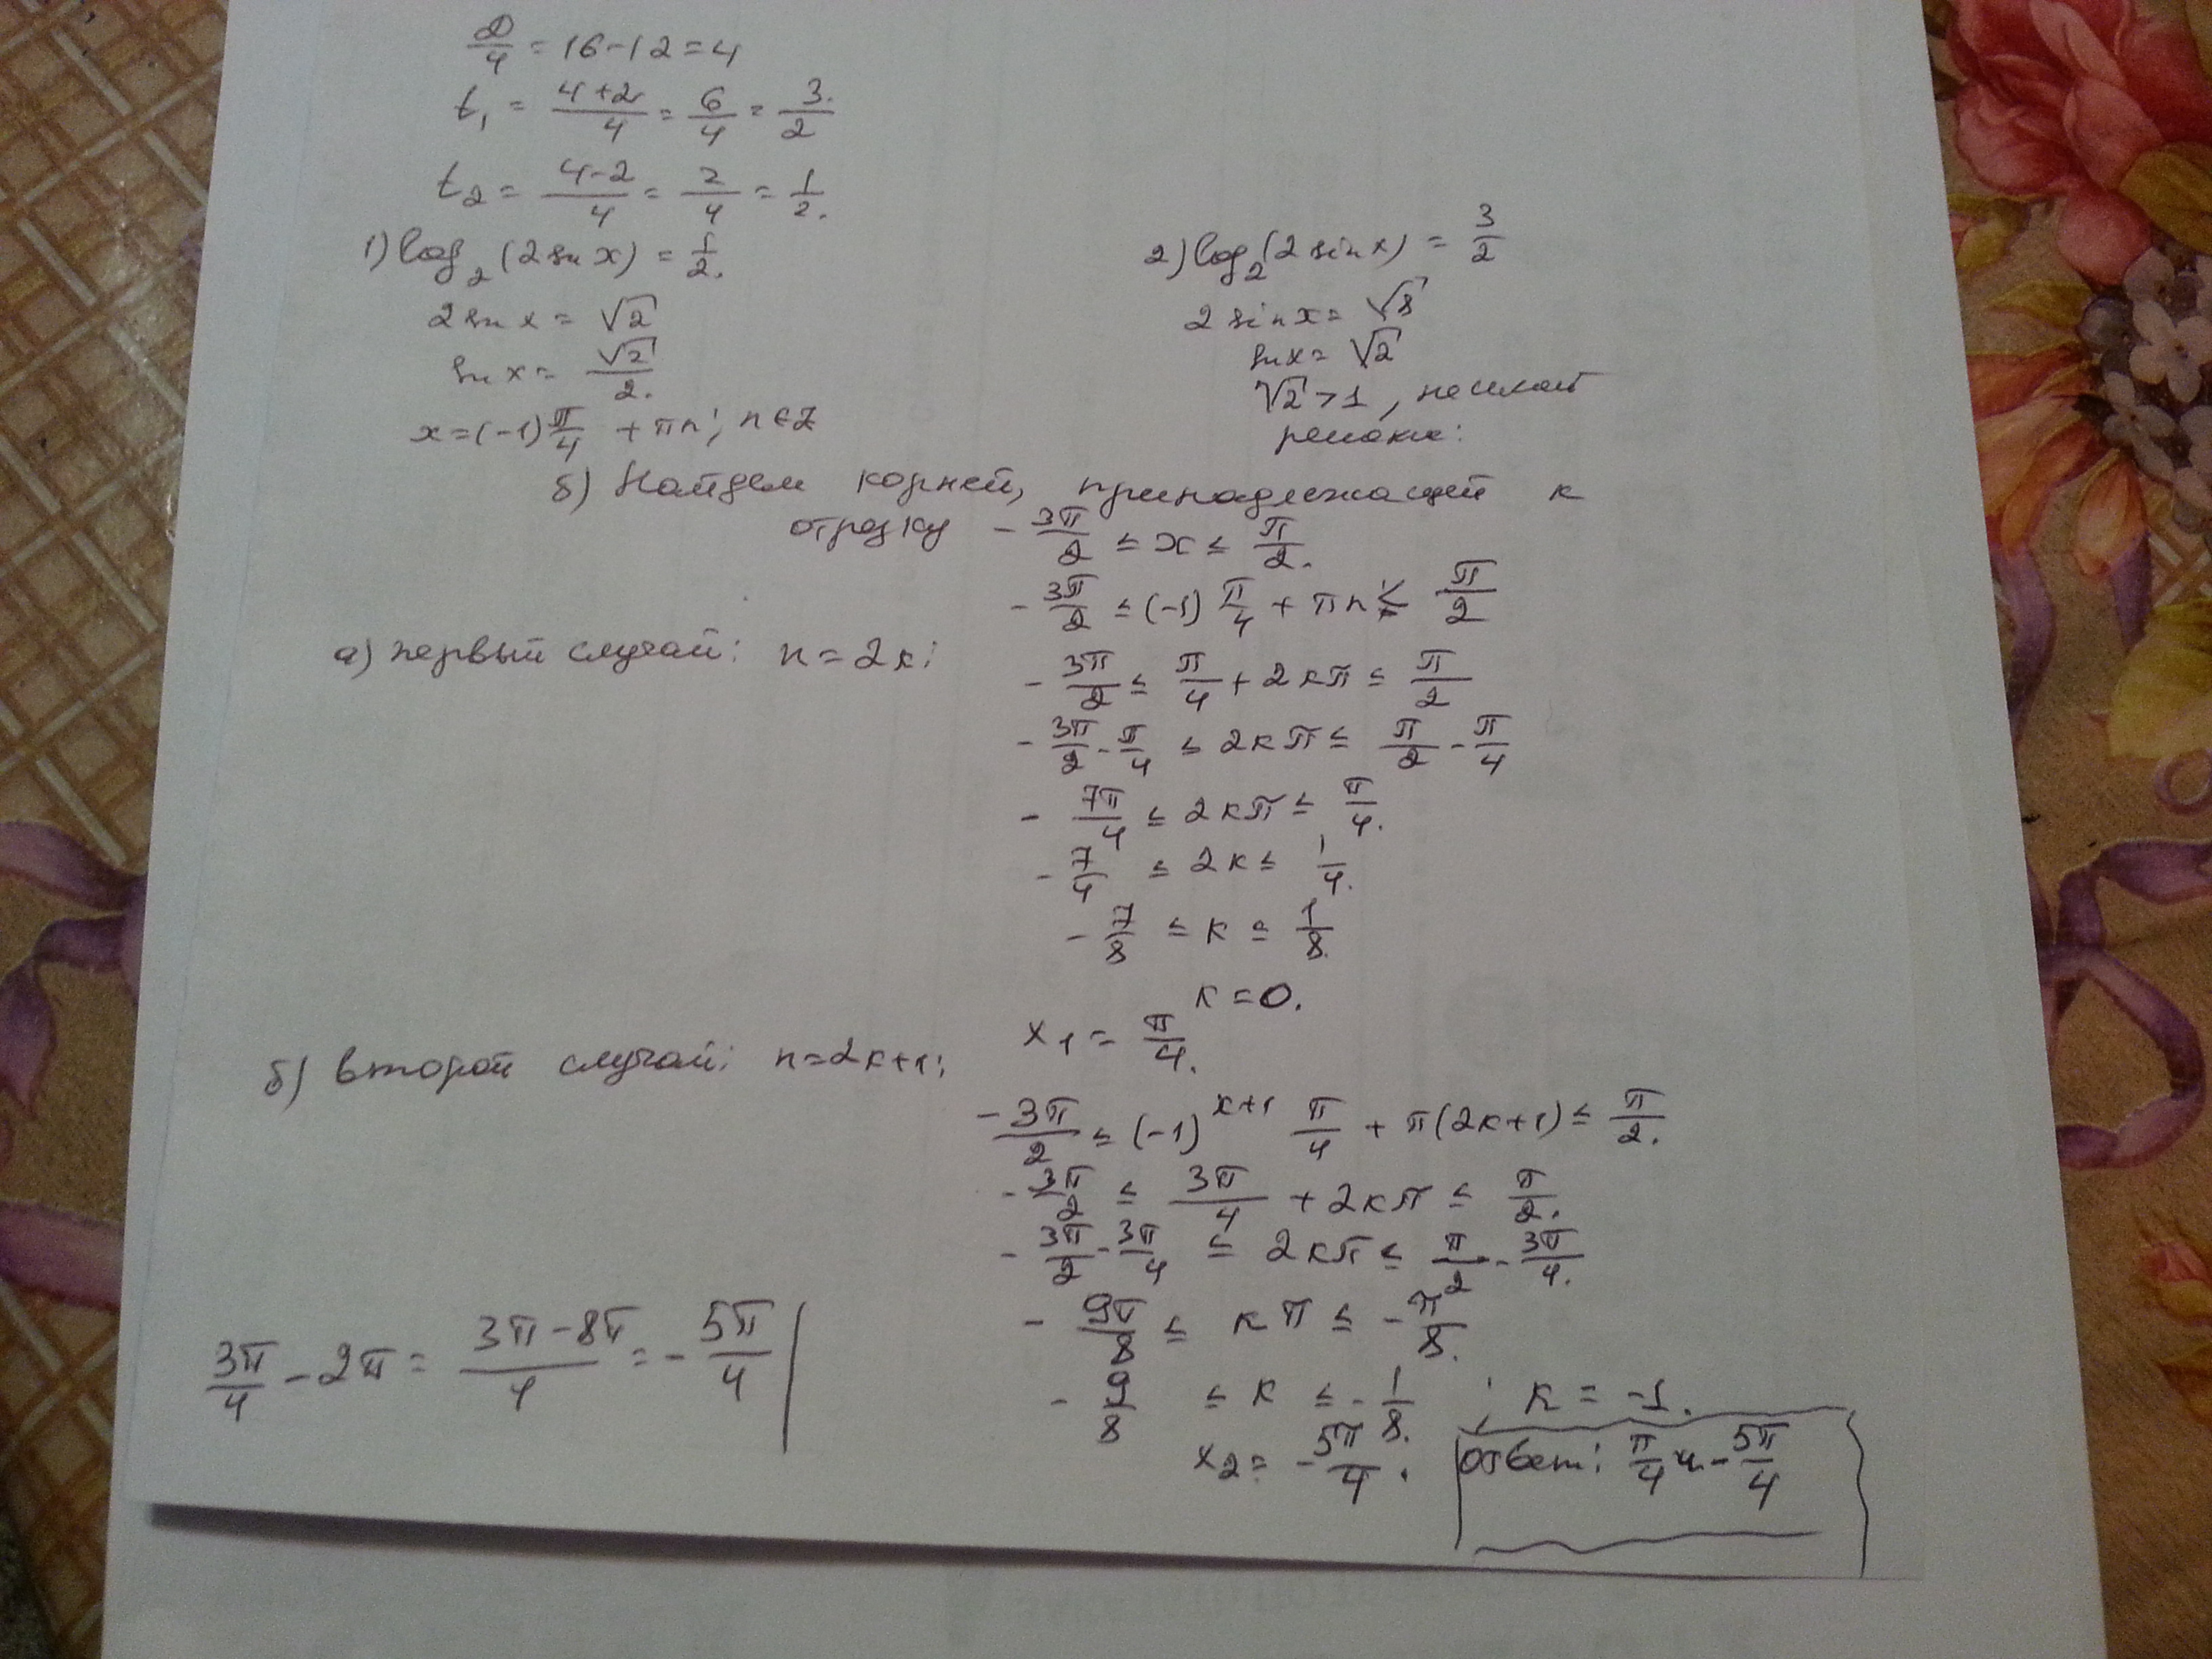 D/4 = 16-12 = 4
t₁ = (4+2)/4 = 6/4 = 3/2
t₂ = (4-2)/4 = 2/4 = 1/2.
1) log₂(2sin x) = 1/2.
2sin x = √2
sin x = √2/2.
x = (-1) π/4 + πn; n∈Z
2) log₂(2 sin x) = 3/2
2 sin x = √8
sin x = √2
√2 > 1, не имеет
решения.
б) Найдем корней, принадлежащей к
отрезку -3π/2 ≤ x ≤ π/2.
-3π/2 ≤ (-1) π/4 + πn ≤ π/2
а) первый случай: n = 2k;
-3π/2 ≤ π/4 + 2kπ ≤ π/2
-3π/2 - π/4 ≤ 2kπ ≤ π/2 - π/4
-7π/4 ≤ 2kπ ≤ π/4.
-7/4 ≤ 2k ≤ 1/4.
-7/8 ≤ k ≤ 1/8.
k = 0.
x₁ = π/4.
б) второй случай: n = 2k+1;
-3π/2 ≤ (-1)^(k+1) π/4 + π(2k+1) ≤ π/2.
-3π/2 ≤ 3π/4 + 2kπ ≤ π/2.
-3π/2 - 3π/4 ≤ 2kπ ≤ π/2 - 3π/4.
-9π/8 ≤ kπ ≤ -π/8.
-9/8 ≤ k ≤ -1/8. ; k = -1.
x₂ = -5π/4.
3π/4 - 2π = (3π-8π)/4 = -5π/4
ответ: π/4 и -5π/4